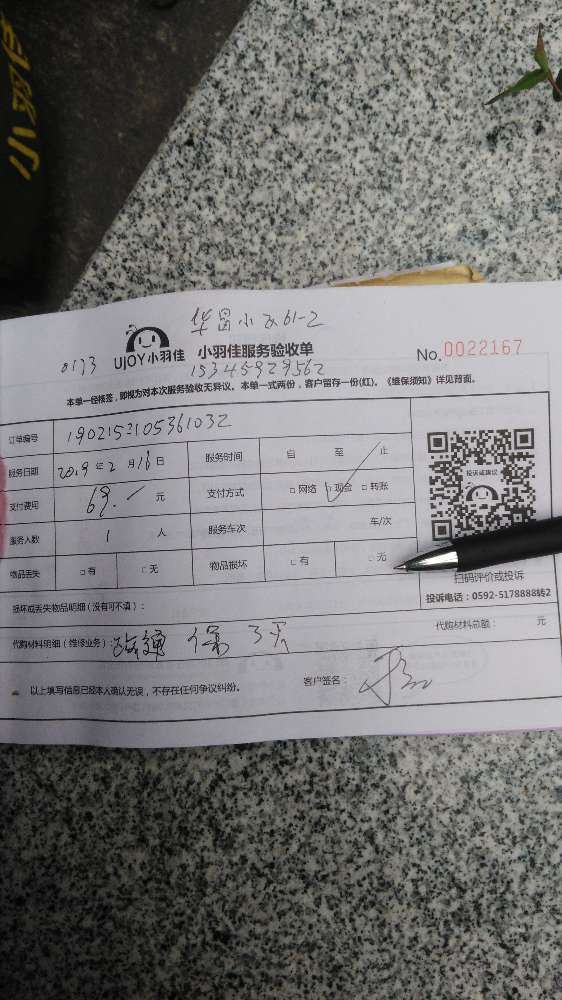 华昌小区61-2
0173 UJOY小羽佳 小羽佳服务验收单 No.0022167
本单一经核签，即视为对本次服务验收无异议。本单一式两份，客户留存一份(红)。《维保须知》详见背面。
订单编号
服务日期 2019年2月16日 服务时间 自 至 止
支付费用 69. 元 支付方式 □网络 □现金 □转账
服务人数 1 人 服务车次 车/次
物品丢失 □有 □无 物品损坏 □有 □无
投诉或建议
扫码评价或投诉
投诉电话：0592-5178888转2
损坏或丢失物品明细（没有可不填）：
代购材料明细（维修业务）： 疏通 保 3天 代购材料总额： 元
以上填写信息已经本人确认无误，不存在任何争议纠纷。 客户签名：